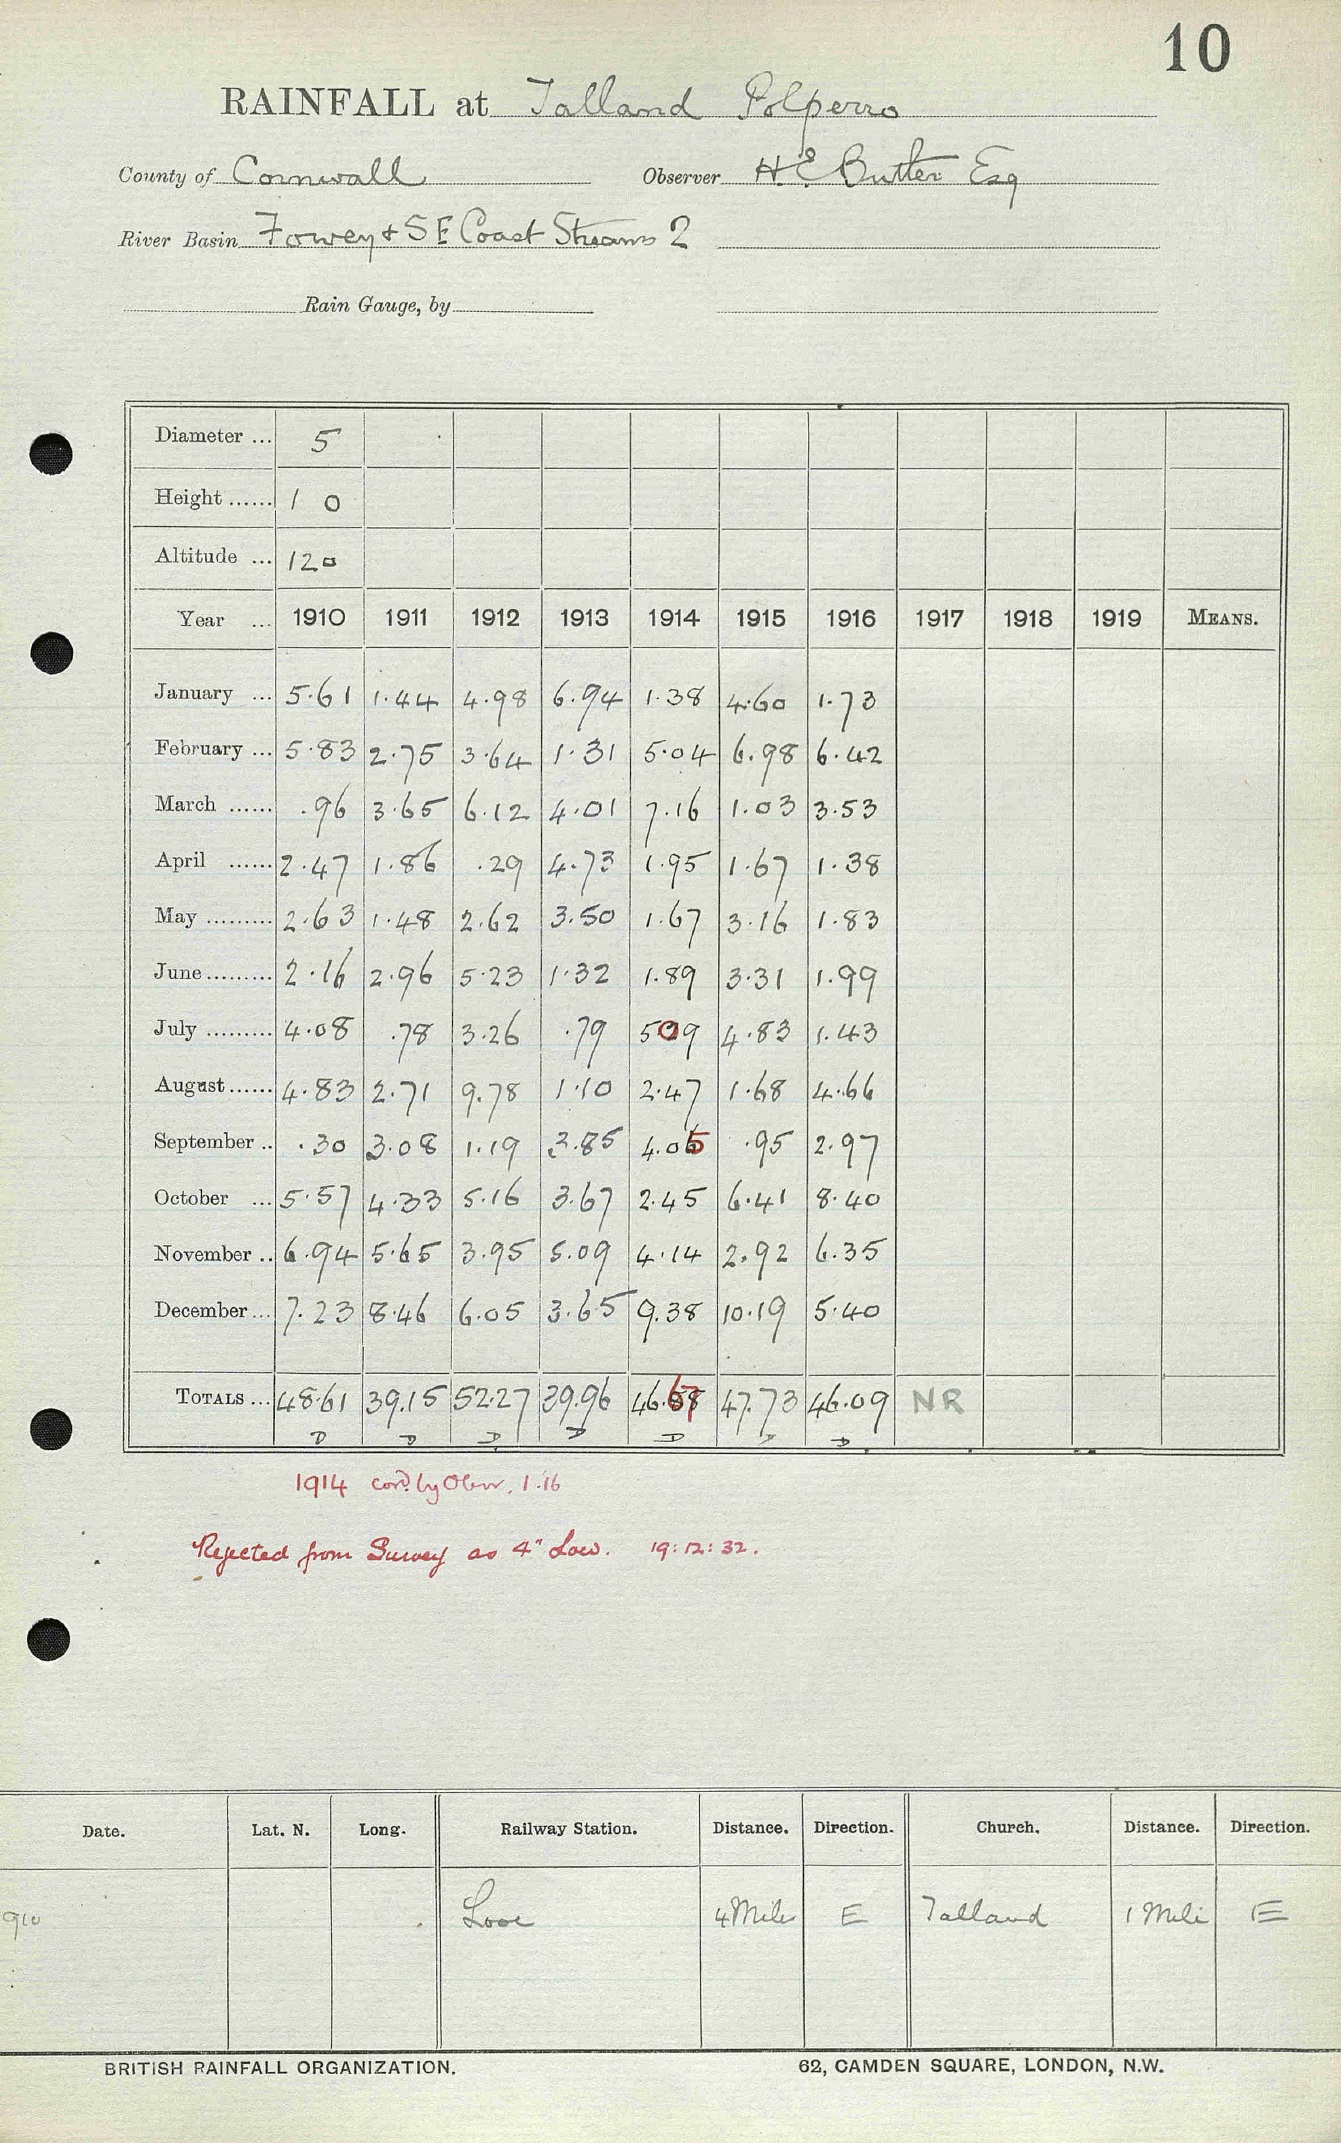 10
RAINFALL at Talland Polperro
County of Cornwall Observer H.E. Butter Esq
River Basin Fowey & SE Coast Streams 2
Rain Gauge, by
Diameter ... 5
Height ...... 1 0
Altitude ... 120
Year ... 1910 1911 1912 1913 1914 1915 1916 1917 1918 1919 MEANS.
January ... 5.61 1.44 4.98 6.94 1.38 4.60 1.73
February ... 5.83 2.75 3.64 1.31 5.04 6.98 6.42
March ...... .96 3.65 6.12 4.01 7.16 1.03 3.53
April ...... 2.47 1.86 .29 4.73 1.95 1.67 1.38
May ......... 2.63 1.48 2.62 3.50 1.67 3.16 1.83
June ......... 2.16 2.96 5.23 1.32 1.89 3.31 1.99
July ......... 4.08 .78 3.26 .79 509 4.83 1.43
August ...... 4.83 2.71 9.78 1.10 2.47 1.68 4.66
September .. .30 3.08 1.19 3.85 4.05 .95 2.97
October ... 5.57 4.33 5.16 3.67 2.45 6.41 8.40
November .. 6.94 5.65 3.95 5.09 4.14 2.92 6.35
December ... 7.23 8.46 6.05 3.65 9.38 10.19 5.40
TOTALS ... 48.61 39.15 52.27 39.96 46.67 47.73 46.09 NR
D D D D D D D
1914 cord. by Obsr. 1.16
Rejected from Survey as 4" Low. 19:12:32.
Date. Lat. N. Long. Railway Station. Distance. Direction. Church. Distance. Direction.
910 Looe 4 Miles E Talland 1 Mile E
BRITISH RAINFALL ORGANIZATION. 62, CAMDEN SQUARE, LONDON, N.W.